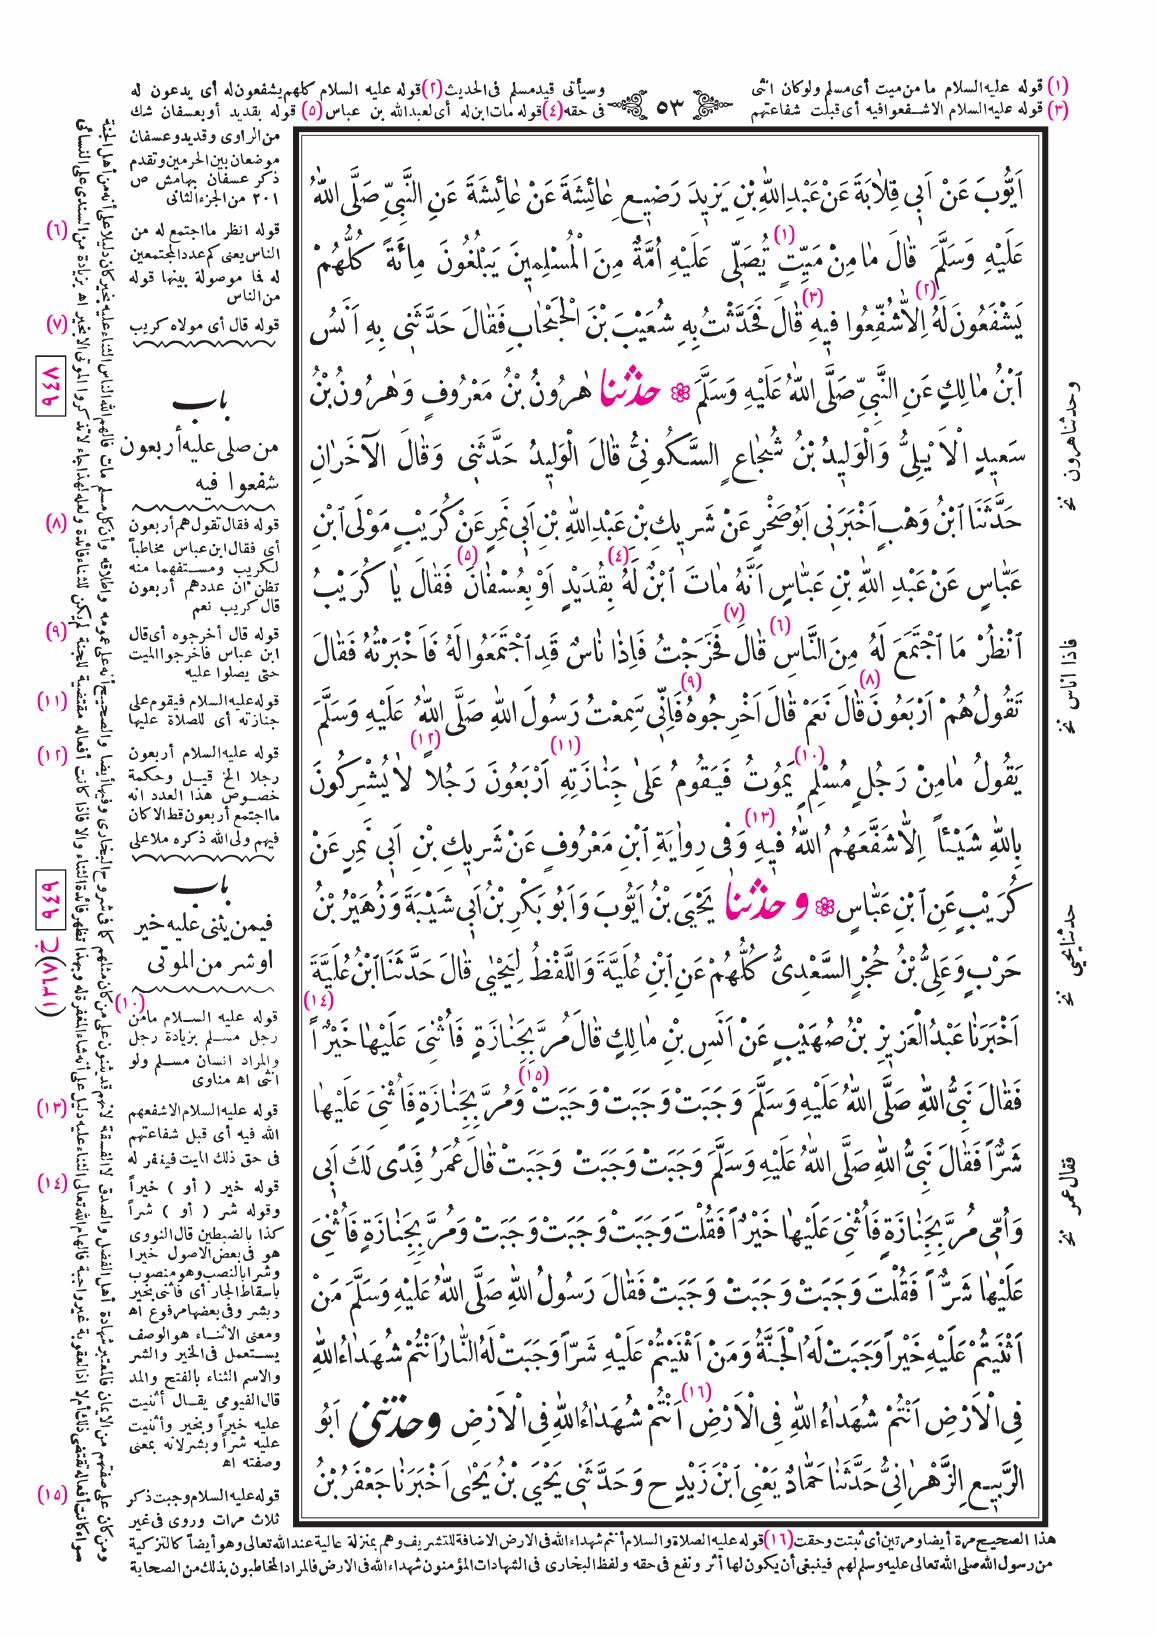 (١) قوله عليه السلام ما من ميت أى مسلم ولو كان انثى وسيأتى قيد مسلم فى الحديث (٢) قوله عليه السلام كلهم يشفعون له أى يدعون له
(٣) قوله عليه السلام الا شفعوا فيه أى قبلت شفاعتهم فى حقه (٤) قوله مات ابن له أى لعبد الله بن عباس (٥) قوله بقديد أو بعسفان شك
٥٣
اَيُّوبَ عَنْ اَبِى قِلاٰبَةَ عَنْ عَبْدِ اللّٰهِ بْنِ يَزِيدَ رَضِيعِ عٰائِشَةَ عَنْ عٰائِشَةَ عَنِ النَّبِىِّ صَلَّى اللّٰهُ
عَلَيْهِ وَسَلَّمَ قٰالَ مٰا مِنْ مَيِّتٍ (١) تُصَلِّى عَلَيْهِ اُمَّةٌ مِنَ الْمُسْلِمِينَ يَبْلُغُونَ مِائَةً كُلُّهُمْ
يَشْفَعُونَ لَهُ (٢) اِلاّٰ شُفِّعُوا فِيهِ (٣) قٰالَ فَحَدَّثْتُ بِهِ شُعَيْبَ بْنَ الْحَبْحٰابِ فَقٰالَ حَدَّثَنِى بِهِ اَنَسُ
ابْنُ مٰالِكٍ عَنِ النَّبِىِّ صَلَّى اللّٰهُ عَلَيْهِ وَسَلَّمَ ۞ حدثنا هٰرُونُ بْنُ مَعْرُوفٍ وَهٰرُونُ بْنُ
سَعِيدٍ الْاَيْلِىُّ وَالْوَلِيدُ بْنُ شُجٰاعٍ السَّكُونِىُّ قٰالَ الْوَلِيدُ حَدَّثَنِى وَقٰالَ الْآخَرٰانِ
حَدَّثَنَا ابْنُ وَهْبٍ اَخْبَرَنِى اَبُو صَخْرٍ عَنْ شَرِيكِ بْنِ عَبْدِ اللّٰهِ بْنِ اَبِى نَمِرٍ عَنْ كُرَيْبٍ مَوْلَى ابْنِ
عَبّٰاسٍ عَنْ عَبْدِ اللّٰهِ بْنِ عَبّٰاسٍ اَنَّهُ مٰاتَ ابْنٌ لَهُ (٤) بِقُدَيْدٍ اَوْ بِعُسْفٰانَ (٥) فَقٰالَ يٰا كُرَيْبُ
انْظُرْ مَا اجْتَمَعَ لَهُ مِنَ النّٰاسِ (٦) قٰالَ (٧) فَخَرَجْتُ فَاِذٰا نٰاسٌ قَدِ اجْتَمَعُوا لَهُ فَاَخْبَرْتُهُ فَقٰالَ
تَقُولُ هُمْ اَرْبَعُونَ (٨) قٰالَ نَعَمْ قٰالَ اَخْرِجُوهُ (٩) فَاِنِّى سَمِعْتُ رَسُولَ اللّٰهِ صَلَّى اللّٰهُ عَلَيْهِ وَسَلَّمَ
يَقُولُ مٰا مِنْ رَجُلٍ مُسْلِمٍ (١٠) يَمُوتُ فَيَقُومُ عَلىٰ جَنٰازَتِهِ (١١) اَرْبَعُونَ رَجُلاً (١٢) لاٰ يُشْرِكُونَ
بِاللّٰهِ شَيْئاً اِلاّٰ شَفَّعَهُمُ اللّٰهُ فِيهِ (١٣) وَفِى رِوٰايَةِ ابْنِ مَعْرُوفٍ عَنْ شَرِيكِ بْنِ اَبِى نَمِرٍ عَنْ
كُرَيْبٍ عَنِ ابْنِ عَبّٰاسٍ ۞ وحدثنا يَحْيَى بْنُ اَيُّوبَ وَاَبُو بَكْرِ بْنُ اَبِى شَيْبَةَ وَزُهَيْرُ بْنُ
حَرْبٍ وَعَلِىُّ بْنُ حُجْرٍ السَّعْدِىُّ كُلُّهُمْ عَنِ ابْنِ عُلَيَّةَ وَاللَّفْظُ لِيَحْيٰى قٰالَ حَدَّثَنَا ابْنُ عُلَيَّةَ
اَخْبَرَنٰا عَبْدُ الْعَزِيزِ بْنُ صُهَيْبٍ عَنْ اَنَسِ بْنِ مٰالِكٍ قٰالَ مُرَّ بِجَنٰازَةٍ فَاُثْنِىَ عَلَيْهٰا خَيْرٌاً (١٤)
فَقٰالَ نَبِىُّ اللّٰهِ صَلَّى اللّٰهُ عَلَيْهِ وَسَلَّمَ وَجَبَتْ وَجَبَتْ وَجَبَتْ (١٥) وَمُرَّ بِجَنٰازَةٍ فَاُثْنِىَ عَلَيْهٰا
شَرٌّاً فَقٰالَ نَبِىُّ اللّٰهِ صَلَّى اللّٰهُ عَلَيْهِ وَسَلَّمَ وَجَبَتْ وَجَبَتْ وَجَبَتْ قٰالَ عُمَرُ فِدًى لَكَ اَبِى
وَاُمِّى مُرَّ بِجَنٰازَةٍ فَاُثْنِىَ عَلَيْهٰا خَيْرٌاً فَقُلْتَ وَجَبَتْ وَجَبَتْ وَجَبَتْ وَمُرَّ بِجَنٰازَةٍ فَاُثْنِىَ
عَلَيْهٰا شَرٌّاً فَقُلْتَ وَجَبَتْ وَجَبَتْ وَجَبَتْ فَقٰالَ رَسُولُ اللّٰهِ صَلَّى اللّٰهُ عَلَيْهِ وَسَلَّمَ مَنْ
اَثْنَيْتُمْ عَلَيْهِ خَيْراً وَجَبَتْ لَهُ الْجَنَّةُ وَمَنْ اَثْنَيْتُمْ عَلَيْهِ شَرّاً وَجَبَتْ لَهُ النّٰارُ اَنْتُمْ شُهَدٰاءُ اللّٰهِ
فِى الْاَرْضِ اَنْتُمْ شُهَدٰاءُ اللّٰهِ فِى الْاَرْضِ (١٦) اَنْتُمْ شُهَدٰاءُ اللّٰهِ فِى الْاَرْضِ وحدثنى اَبُو
الرَّبِيعِ الزَّهْرٰانِىُّ حَدَّثَنٰا حَمّٰادٌ يَعْنِى ابْنَ زَيْدٍ ح وَحَدَّثَنِى يَحْيَى بْنُ يَحْيٰى اَخْبَرَنٰا جَعْفَرُ بْنُ
من الراوى وقديد وعسفان
موضعان بين الحرمين وتقدم
ذكر عسفان بهامش ص
٢٠١ من الجزء الثانى
(٦) قوله انظر ما اجتمع له من
الناس يعنى كم عدد المجتمعين
له فما موصولة بينها قوله
من الناس
(٧) قوله قال أى مولاه كريب
باب
من صلى عليه أربعون
شفعوا فيه
(٨) قوله فقال تقول هم أربعون
أى فقال ابن عباس مخاطباً
لكريب ومستفهما منه
تظن ان عددهم أربعون
قال كريب نعم
(٩) قوله قال أخرجوه أى قال
ابن عباس فأخرجوا الميت
حتى يصلوا عليه
(١١) قوله عليه السلام فيقوم على
جنازته أى للصلاة عليها
(١٢) قوله عليه السلام أربعون
رجلا الخ قيل وحكمة
خصوص هذا العدد انه
ما اجتمع أربعون قط الا كان
فيهم ولى الله ذكره ملا على
باب
فيمن يثنى عليه خير
او شر من الموتى
(١٠) قوله عليه السلام ما من
رجل مسلم بزيادة رجل
والمراد انسان مسلم ولو
انثى اه مناوى
(١٣) قوله عليه السلام الا شفعهم
الله فيه أى قبل شفاعتهم
فى حق ذلك الميت فيغفر له
(١٤) قوله خير ( أو ) خيراً
وقوله شر ( أو ) شراً
كذا بالضبطين قال النووى
هو فى بعض الاصول خيرا
وشرا بالنصب وهو منصوب
باسقاط الجار أى فأثنى بخير
وبشر وفى بعضها مرفوع اه
ومعنى الاثناء هو الوصف
يستعمل فى الخير والشر
والاسم الثناء بالفتح والمد
قال الفيومى يقال أثنيت
عليه خيراً وبخير وأثنيت
عليه شراً وبشر لانه بمعنى
وصفته اه
(١٥) قوله عليه السلام وجبت ذكر
ثلاث مرات وروى فى غير
هذا الصحيح مرة أيضا ومرتين أى ثبتت وحقت (١٦) قوله عليه الصلاة والسلام أنتم شهداء الله فى الارض الاضافة للتشريف وهم بمنزلة عالية عند الله تعالى وهو أيضاً كالتزكية
من رسول الله صلى الله تعالى عليه وسلم لهم فينبغى أن يكون لها أثر ونفع فى حقه ولفظ البخارى فى الشهادات المؤمنون شهداء الله فى الارض فالمراد المخاطبون بذلك من الصحابة
وحدثنا هرون نخ
فاذا اناس نخ
حدثنا يحيى نخ
فقال عمر نخ
٩٤٨
٩٤٩